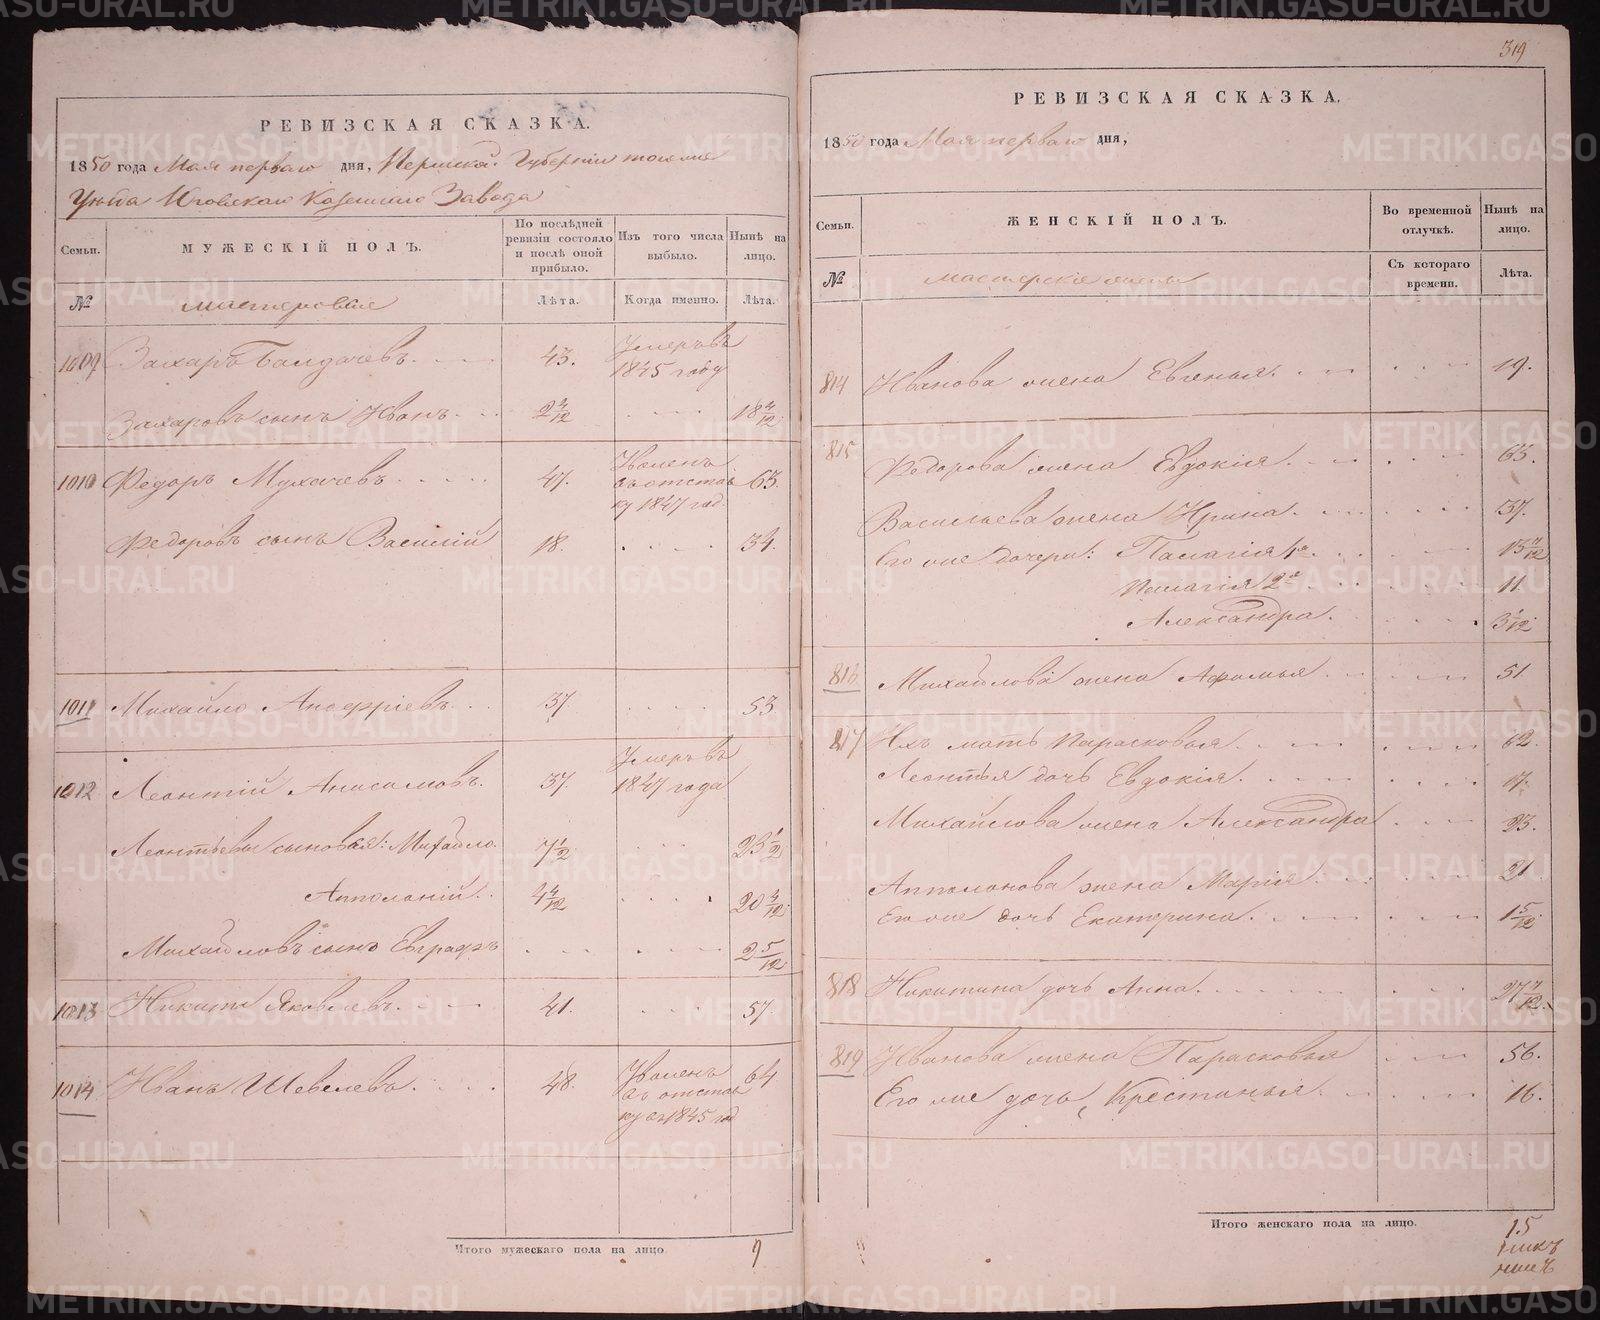 РЕВИЗСКАЯ СКАЗКА.
1850 года Мая перваго дня, Пермской Губерніи тогоже
Уѣзда Юговскаго Казеннаго Завода
Семьи.
МУЖЕСКІЙ ПОЛЪ.
По послѣдней ревизіи состояло и послѣ оной прибыло.
Изъ того числа выбыло.
Нынѣ на лицо.
№
мастеровые
Лѣта.
Когда именно.
Лѣта.
1009 Захаръ Балдачевъ. 43. Умеръ въ
1845 году
Захаровъ сынъ Иванъ. 2 4/12 18 4/12
1010 Федоръ Мухачевъ 47. Уволенъ
въ отстав 63.
ку 1847 год.
Федоровъ сынъ Василій 18. 34.
1011 Михайло 37 53
1012 Леонтій Анисимовъ. 37. Умеръ въ
1847 года
Леонтьевы сыновья: Михайло. 7 1/2 23 1/2
Апполоній. 4 4/12 20 4/12
Михайловъ сынъ Евграфъ 2 5/12
1013 Никита Яковлевъ. 41. 57.
1014 Иванъ Шевелевъ. 48. Уволенъ 64
въ отстав
ку съ 1845 год
Итого мужескаго пола на лицо. 9
319
РЕВИЗСКАЯ СКАЗКА.
1850 года Мая перваго дня,
Семьи.
ЖЕНСКІЙ ПОЛЪ.
Во временной отлучкѣ.
Нынѣ на лицо.
№
мастерскіе жены
Съ котораго времени.
Лѣта.
814 Иванова жена Евгенья. 19.
815 Федорова жена Евдокія. 65.
Васильева жена Ирина. 37.
Его же дочери: Палагія 1я 13 7/12
Палагія 2я 11.
Александра. 3 1/12
816 Михайлова жена Афимья 51.
817 Ихъ мать Парасковья. 62.
Леонтья дочь Евдокія. 17.
Михайлова жена Александра 23.
Апполонова жена Марія 21.
Его же дочь Екатерина. 1 5/12
818 Никитина дочь Анна. 27 7/12
819 Иванова жена Парасковья 56.
Его же дочь, Крестинья. 16.
Итого женскаго пола на лицо. 15
METRIKI.GASO-URAL.RU